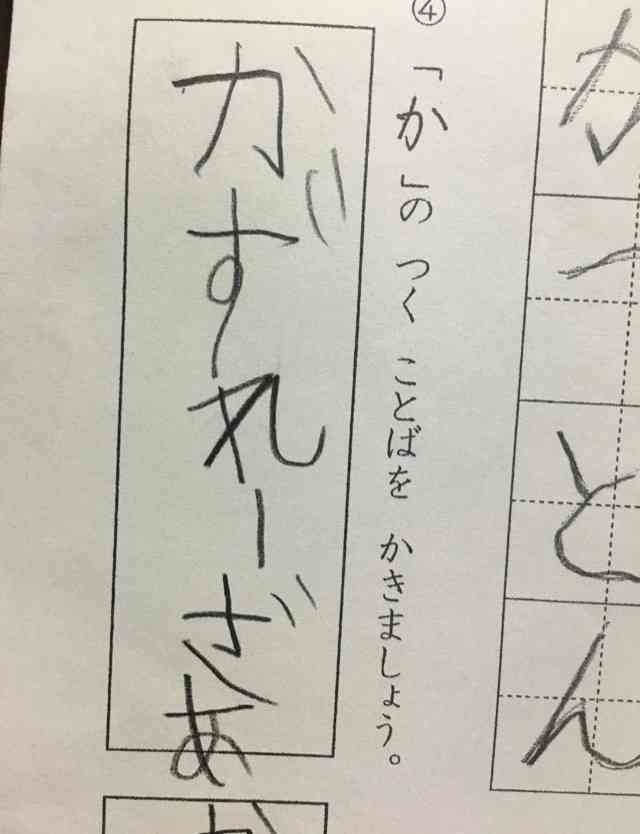 ④ 「か」の つく ことばを かきましょう。
かずれーざあ